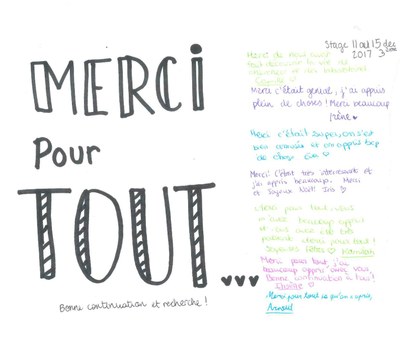 MERCi
Pour
TOUT
Bonne continuation et recherche !
Stage 11 au 15 déc
2017 3ème
Merci de nous avoir
fait découvrir la vie de
chercheur et des
Merci c'était génial, j'ai appris
plein de choses! Merci beaucoup
Irène
Merci c'était super, on s'est
très amusés et on appris trop
de chose
Merci! C'était très intéressant et
j'ai appris beaucoup. Merci
et Joyeux Noël! Iris
Merci pour tout, nous
avons beaucoup appris
et vous avez été très
patient merci pour tout!
Joyeuses fêtes
Merci pour tout, j'ai
beaucoup appris avec vous,
Bonne continuation à tous!
Merci pour tout ce qu'on a appris
Arnaud